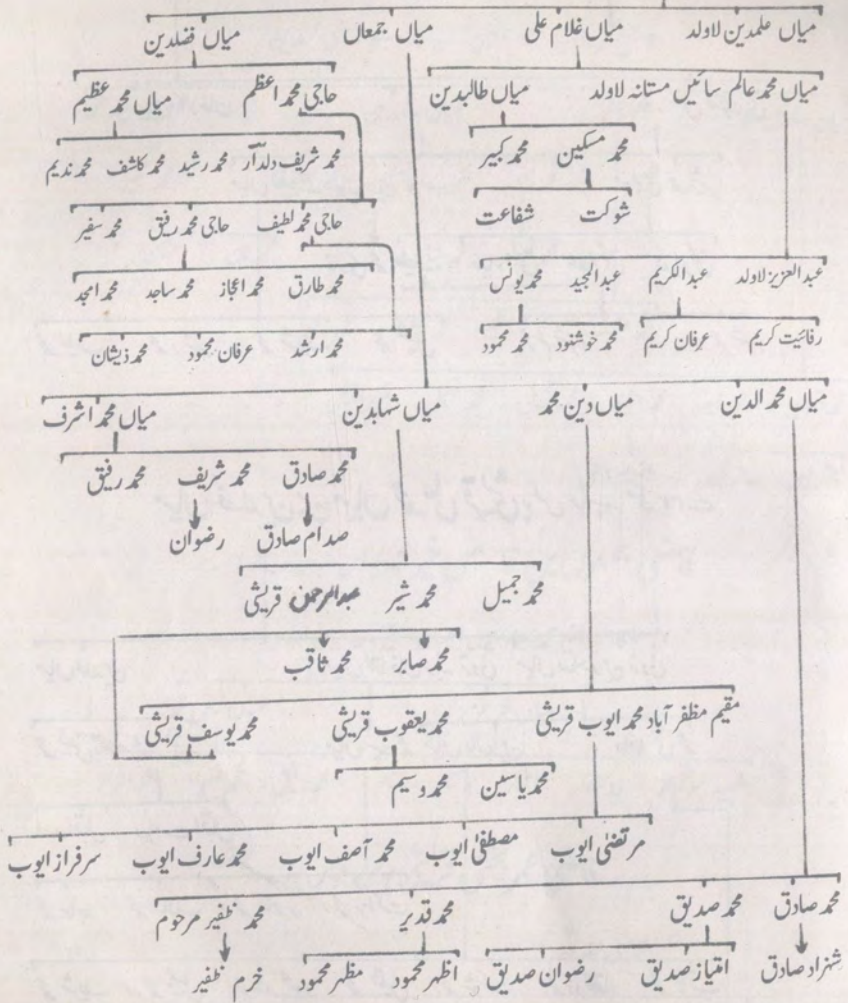 میاں علمدین لاولد میاں غلام علی میاں جمعاں میاں فضلدین
میاں محمد عالم سائیں مستانہ لاولد میاں طالبدین حاجی محمد اعظم میاں محمد عظیم
محمد مسکین محمد کبیر محمد شریف دلدار محمد رشید محمد کاشف محمد ندیم
شوکت شفاعت حاجی محمد لطیف حاجی محمد رفیق محمد سفیر
عبدالعزیز لاولد عبدالکریم عبدالمجید محمد یونس محمد طارق محمد اعجاز محمد ساجد محمد امجد
رفائیت کریم عرفان کریم محمد خوشنود محمد محمود محمد ارشد عرفان محمود محمد ذیشان
میاں محمد الدین میاں دین محمد میاں شہابدین میاں محمد اشرف
محمد صادق محمد شریف محمد رفیق
صدام صادق رضوان
محمد جمیل محمد شبر عبدالرحمن قریشی
محمد صابر محمد ثاقب
مقیم مظفر آباد محمد ایوب قریشی محمد یعقوب قریشی محمد یوسف قریشی
محمد یاسین محمد وسیم
مرتضیٰ ایوب مصطفیٰ ایوب محمد آصف ایوب محمد عارف ایوب سرفراز ایوب
محمد صادق محمد صدیق محمد قدیر محمد ظفیر مرحوم
شہزاد صادق امتیاز صدیق رضوان صدیق اظہر محمود مظہر محمود خرم ظفیر